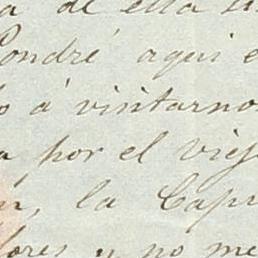 a de ella
Pondré aqui e
o á visitarno
a por el viej
n, la Capi
lores y no me